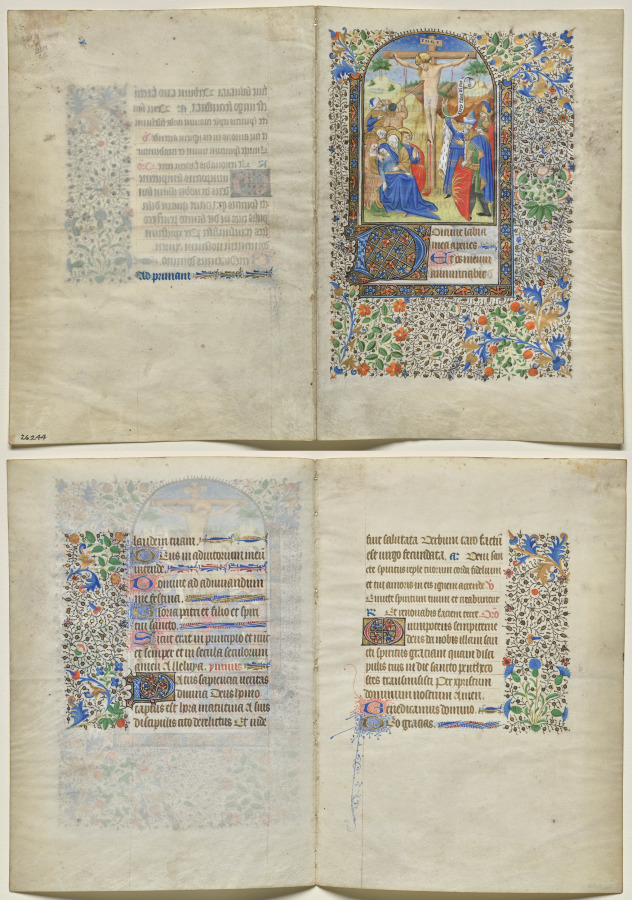 Ad primam
26244
Domine labia
mea aperies
Et os meum
annunciabit
laudem tuam.
Deus in adiutorium meū
intende.
Domine ad adiuvandum
me festina.
Gloria patri et filio et spiri
tui sancto.
Sicut erat in principio et nūc
et semper et in secula seculorum
amen Alleluya. ymnus
Patris sapiencia veritas
divina Deus homo
captus est hora matutina A suis
discipulis cito derelictus Et iude
fuit salutata Verbum caro factū
est virgo fecundata. a. Veni san
cte spiritus reple tuorum corda fidelium
et tui amoris in eis ignem accende v
Emitte spiritum tuum et creabuntur
R Et renovabis faciem terre. Orō
Omnipotens sempiterne
deus da nobis illam san
cti spiritus graciam quam disci
pulis tuis in die sancto pentheco
stes transmisisti Per xpristum
dominum nostrum Amen.
Benedicamus domino.
Deo gracias.